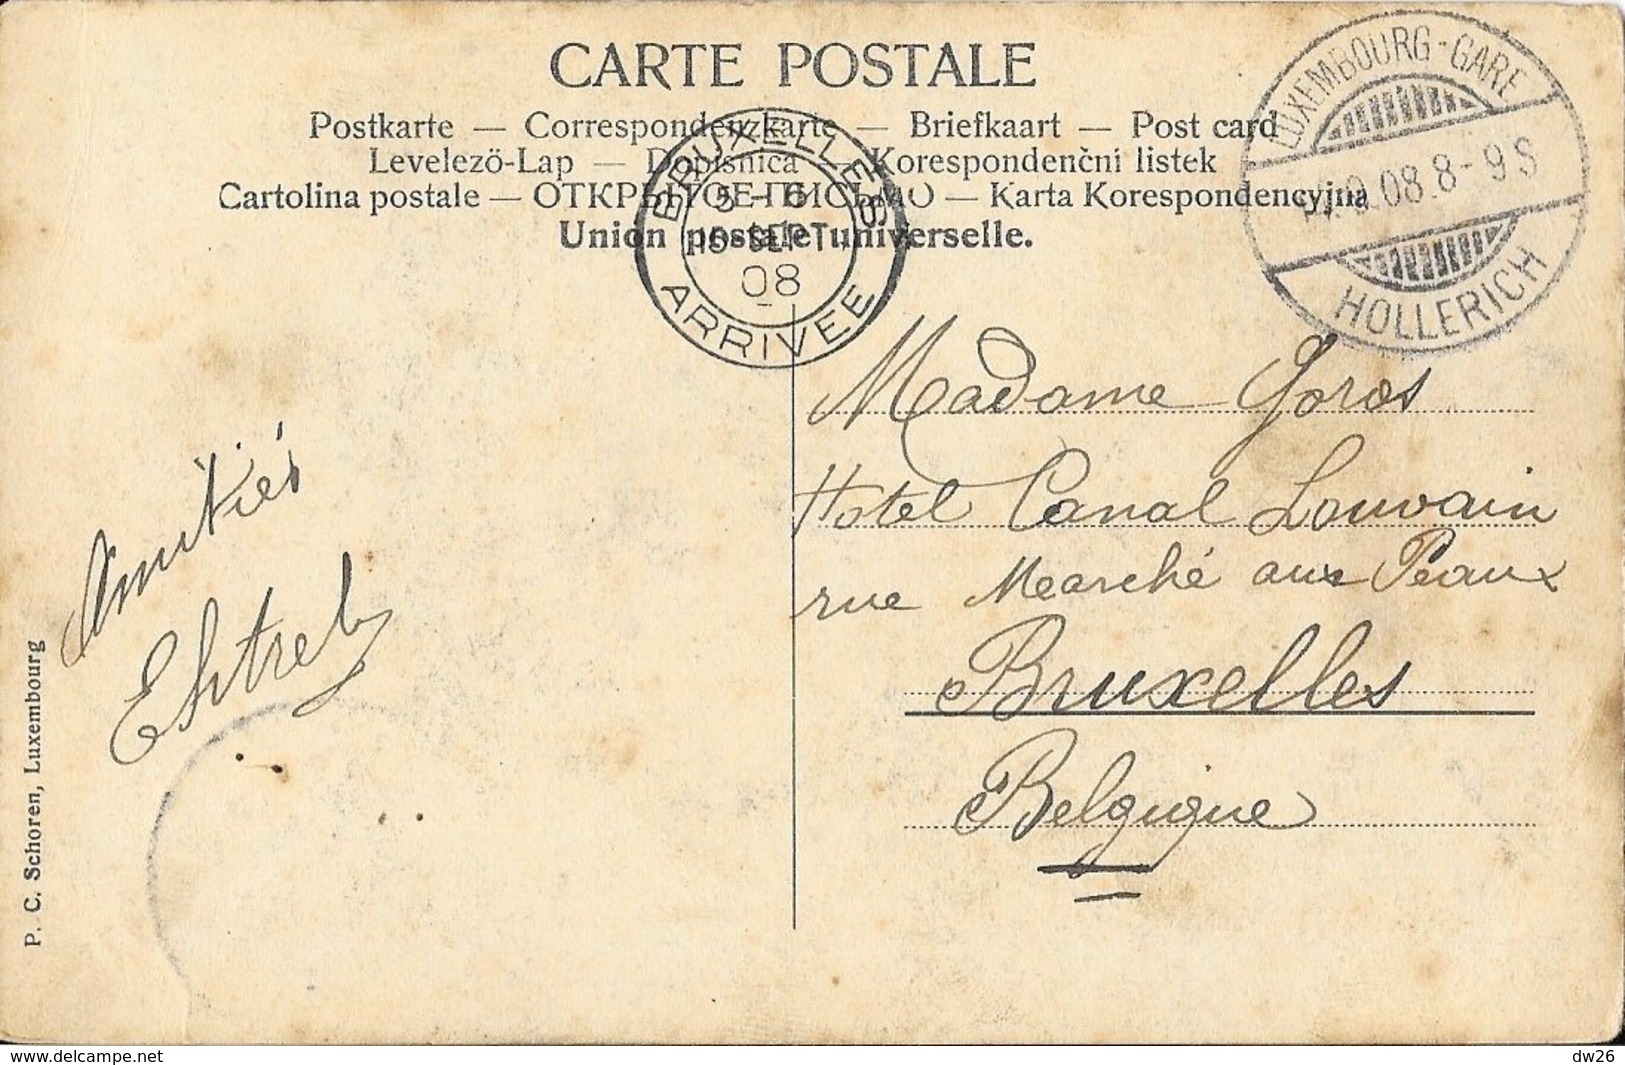 CARTE POSTALE
Postkarte — Correspondenzkarte — Briefkaart — Post card
Levelező-Lap — Dopisnica — Korespondenční listek
Cartolina postale — ОТКРЫТОЕ ПИСЬМО — Karta Korespondencyjna
Union postale universelle.
LUXEMBOURG-GARE
.9.08.8-9S
HOLLERICH
BRUXELLES
5-6
15 SEPT
08
ARRIVEE
Madame Goros
Hotel Canal Louvain
rue Marché aux Peaux
Bruxelles
Belgique
Amitiés
P. C. Schoren, Luxembourg
delcampe.net
dw26